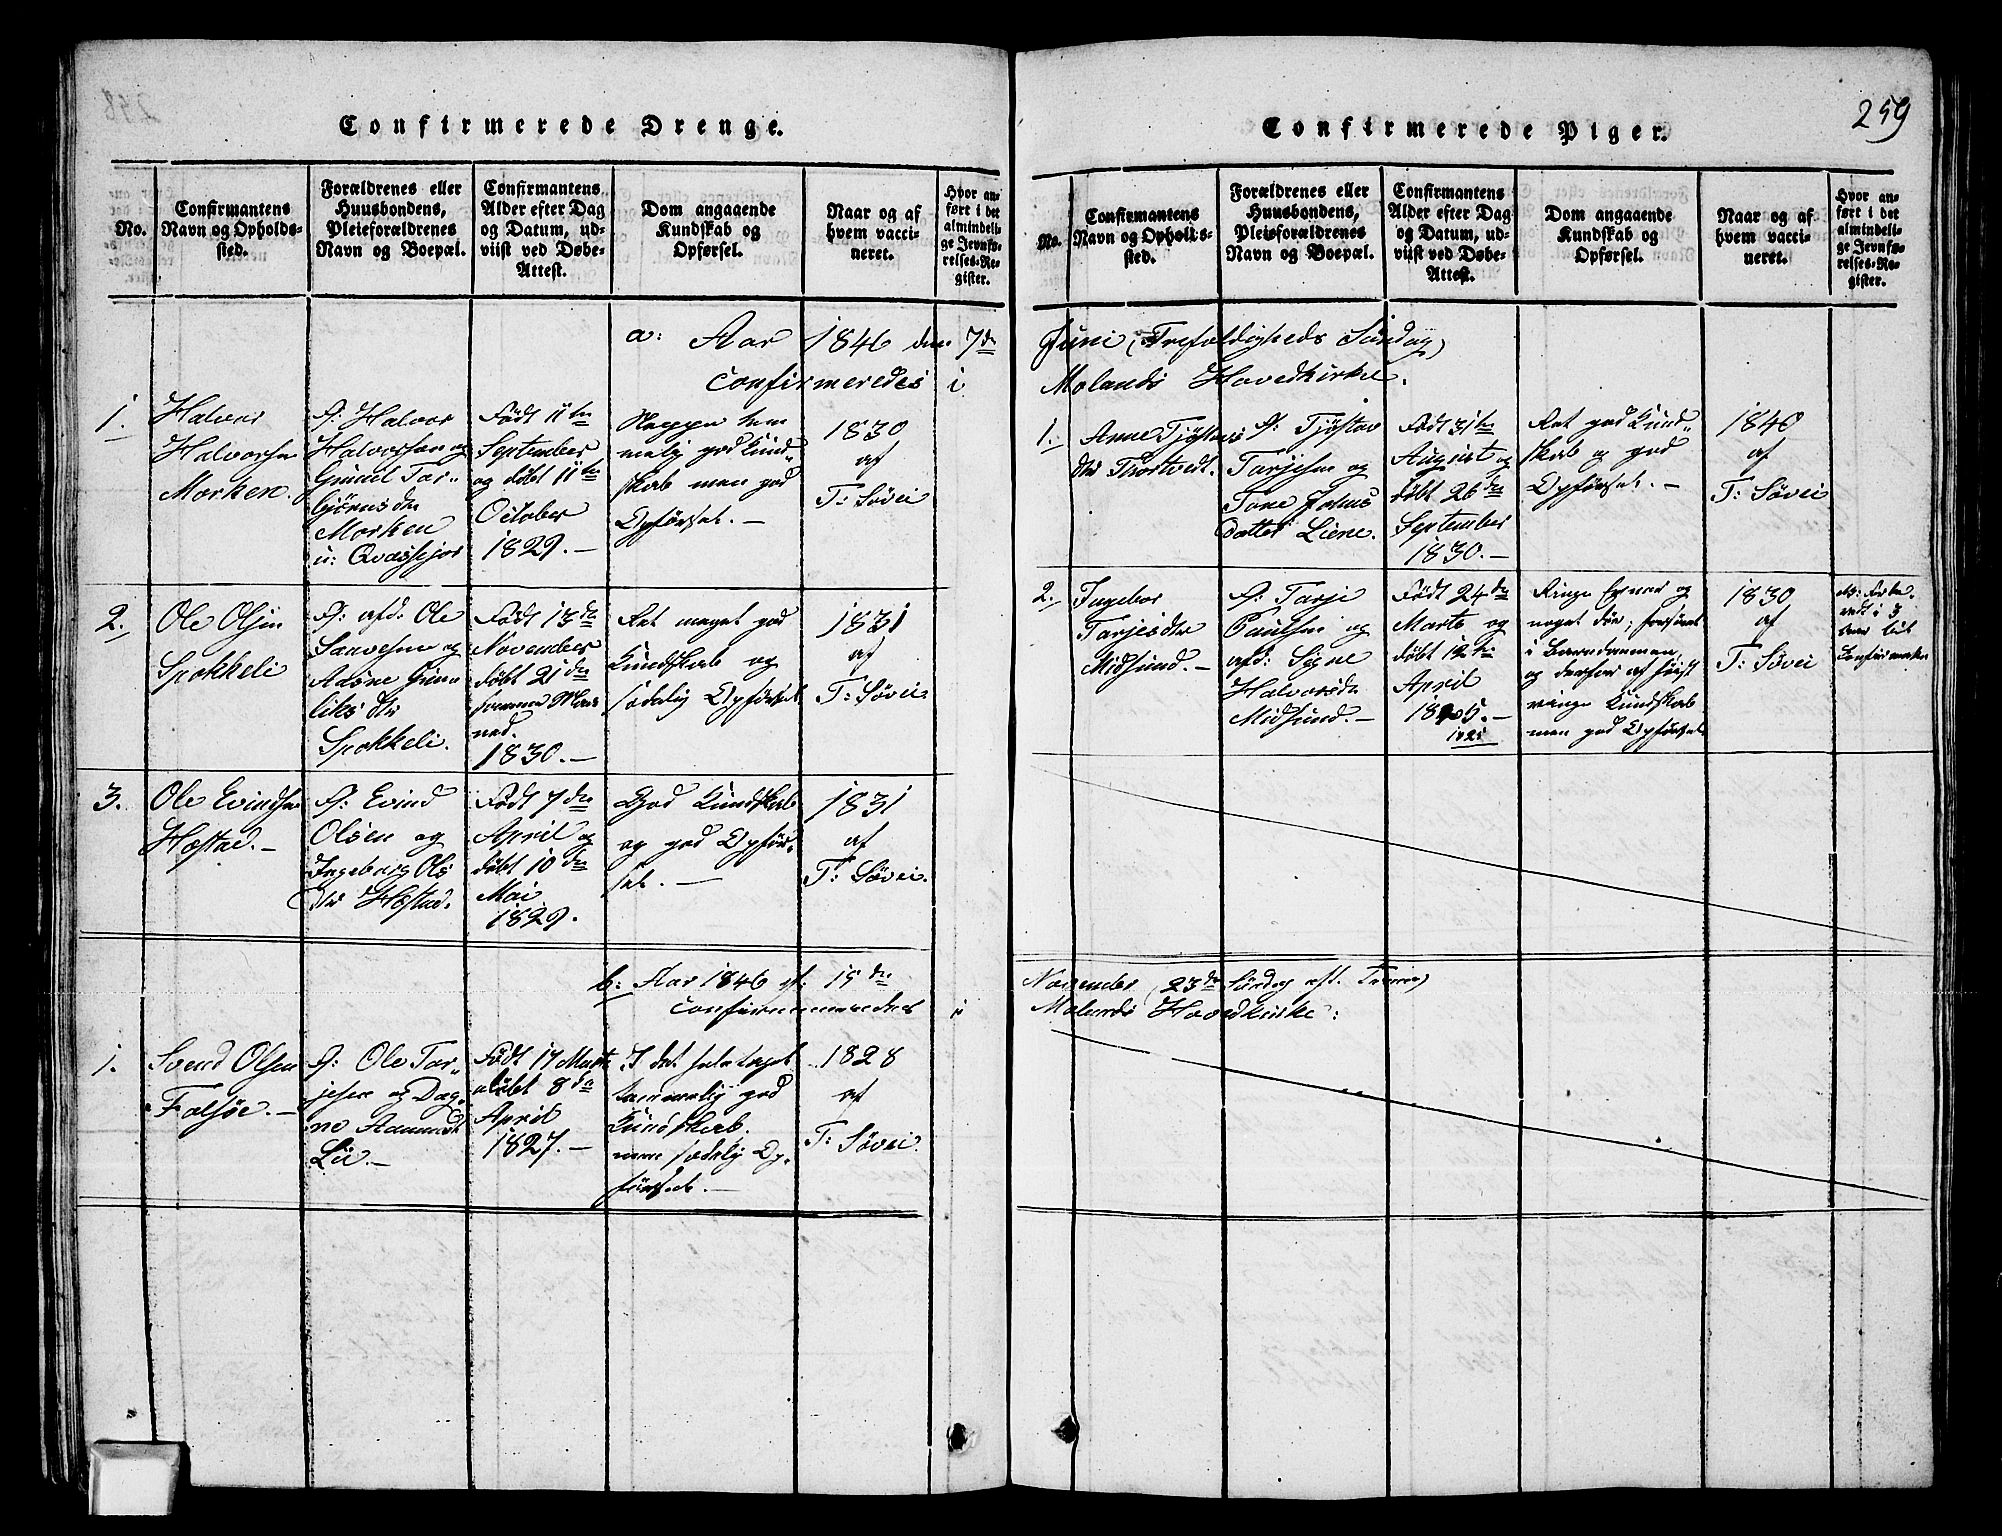 259
Confirmerede Drenge.
No.
Confirmantens
Navn og Opholds-
sted.
Forældrenes eller
Huusbondens,
Pleieforældrenes
Navn og Boepæl.
Confirmantens
Alder efter Dag
og Datum, ud-
viist ved Døbe-
Attest.
Dom angaaende
Kundskab og
Opførsel.
Naar og af
hvem vacci-
neret.
Hvor an-
ført i det
almindeli-
ge Jevnfø-
relses-Re-
gister.
a: Aar 1846 den 7de
Confirmeredes i
1.
Halvor
Halvorsen
Morken.
F: Halvor
Halvorsen og
Gunil Tor-
bjørnsdtr
Morken
u: Qvassejor
Født 11te
September
og døbt 11te
October
1829. —
Neppe tem
melig god Kund-
skab men god
Opførsel. —
1830
af
T: Søvei
2.
Ole Olsen
Spokkeli
F: afd: Ole
Sauvesen og
Aasne Gun
liks dtr
Spokkeli.
Født 13de
November
døbt 21de
samme Maa
ned.
1830. —
Ret meget god
Kundskab og
sædelig Opførsel
1831
af
T: Søvei
3.
Ole Evindsen
Hæstad. —
F: Evind
Olsen og
Ingeborg Ols
dtr Hæstad.
Født 7de
April og
døbt 10de
Mai
1829.
God Kundskab
og god Opfør-
sel. —
1831
af
T: Søvei.
b: Aar 1846 15de
Confirmeredes i
1.
Svend Olsen
Falsøe. —
F: Ole Tar-
jesen og Dag-
ne Aamunds
Lii —
Født 17 Marts
døbt 8de
April
1827. —
I det hele taget
temmelig god
Kundskab.
sædelig Op-
førsel. —
1828
af
T: Søvei.
Confirmerede Piger.
No.
Confirmantens
Navn og Opholds-
sted.
Forældrenes eller
Huusbondens,
Pleieforældrenes
Navn og Boepæl.
Confirmantens
Alder efter Dag
og Datum, ud-
viist ved Døbe-
Attest.
Dom angaaende
Kundskab og
Opførsel.
Naar og af
hvem vacci-
neret.
Hvor an-
ført i det
almindeli-
ge Jevnfø-
relses-Re-
gister.
Juni (Trefoldigheds Søndag)
Molands Hovedkirke.
1.
Anne Tjøstovs
dtr Thortvedt.
F: Tjøstov
Tarjesen og
Tone Johns
datter Liene.
Født 31te
August og
døbt 26de
September
1830. —
Ret god Kund-
skab og god
Opførsel. —
1840
af
T: Søvei
2.
Ingebor
Tarjesdtr
Midsund. —
F: Tarje
Paulsen og
afd: Signe
Halvorsdtr
Midsund. —
Født 24de
Marts og
døbt 12te
April
1825. —
1825
Ringe Evner og
noget døv; forsømt
i Barndommen,
og derfor af høist
ringe Kundskab
men god Opførsel
1830
af
T: Søvei
November (23de Søndag eft. Trinit)
Molands Hovedkirke: